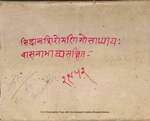 सिद्धान्तशिरोमणिगोलाध्यायः
वासनाभाष्यसहितः
२९५२